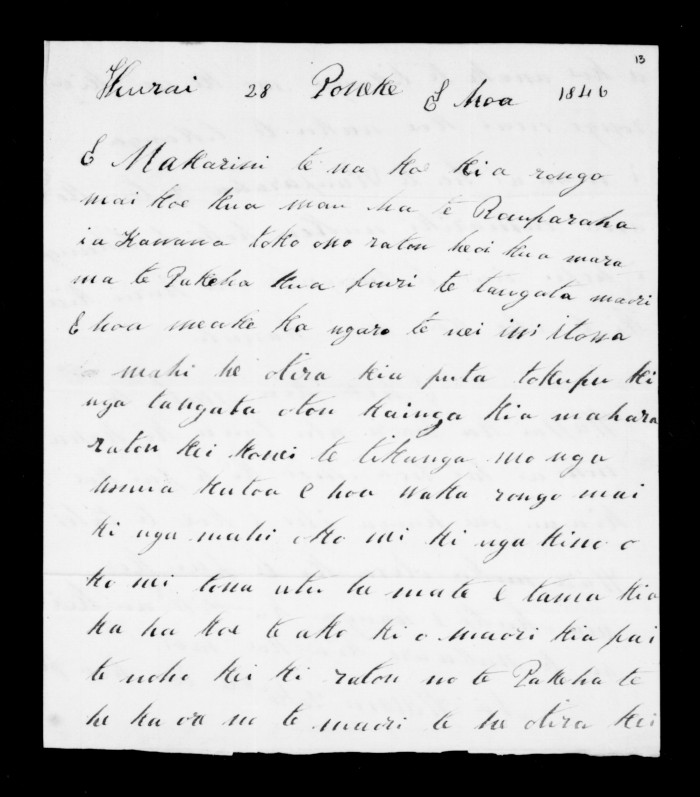 13
Hurai 28 Poneke E hoa 1846
E Makarini te na koe kia rongo
mai koe kua mau ha te Rauparaha
i a Kawana toko ono ratou heoi kua mara
ma te Pakeha kua pouri te tangata maori
E hoa meake ka ngaro te nei iwi itona
mahi he otira kia puta tokupu ki
nga tangata otou kainga kia mahara
ratou kei konei te tikanga mo nga
katoa E hoa waka rongo mai
ki nga mahi oko mi ki nga kino o
ko mi tona utu ta mate E tama kia
ka ha koe te ako ki o maori kia pai
te noho kei ki ratou no te Pakeha te
he ka ore no te maori te he otira kei